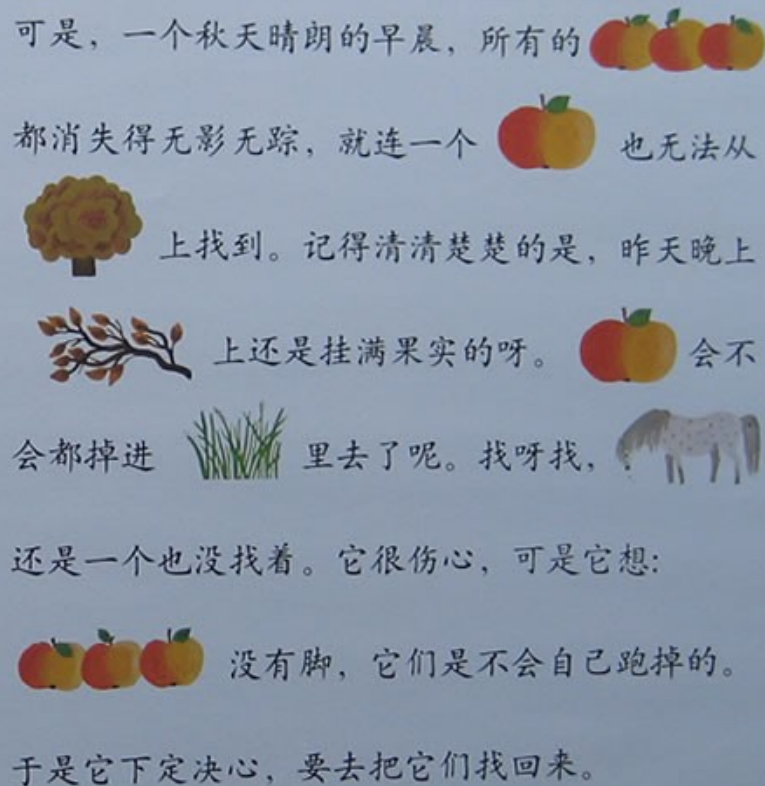 可是，一个秋天晴朗的早晨，所有的
都消失得无影无踪，就连一个 也无法从
上找到。记得清清楚楚的是，昨天晚上
上还是挂满果实的呀。 会不
会都掉进 里去了呢。找呀找，
还是一个也没找着。它很伤心，可是它想：
没有脚，它们是不会自己跑掉的。
于是它下定决心，要去把它们找回来。